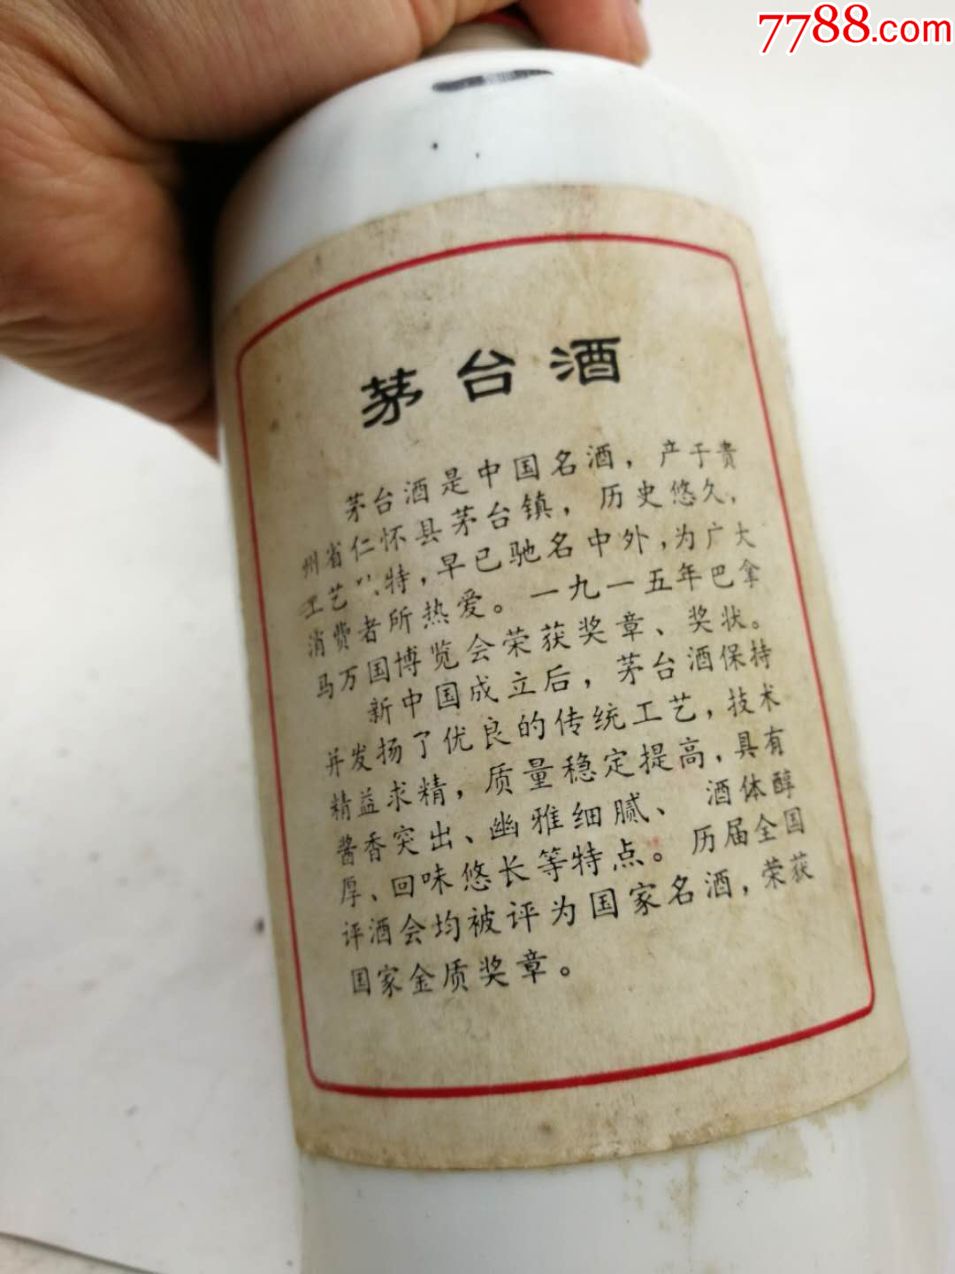 7788.com
茅台酒
茅台酒是中国名酒，产于贵
州省仁怀县茅台镇，历史悠久，
工艺特，早已驰名中外，为广大
消费者所热爱。一九一五年巴拿
马万国博览会荣获奖章、奖状。
新中国成立后，茅台酒保持
并发扬了优良的传统工艺，技术
精益求精，质量稳定提高，具有
酱香突出、幽雅细腻、酒体醇
厚、回味悠长等特点。历届全国
评酒会均被评为国家名酒，荣获
国家金质奖章。